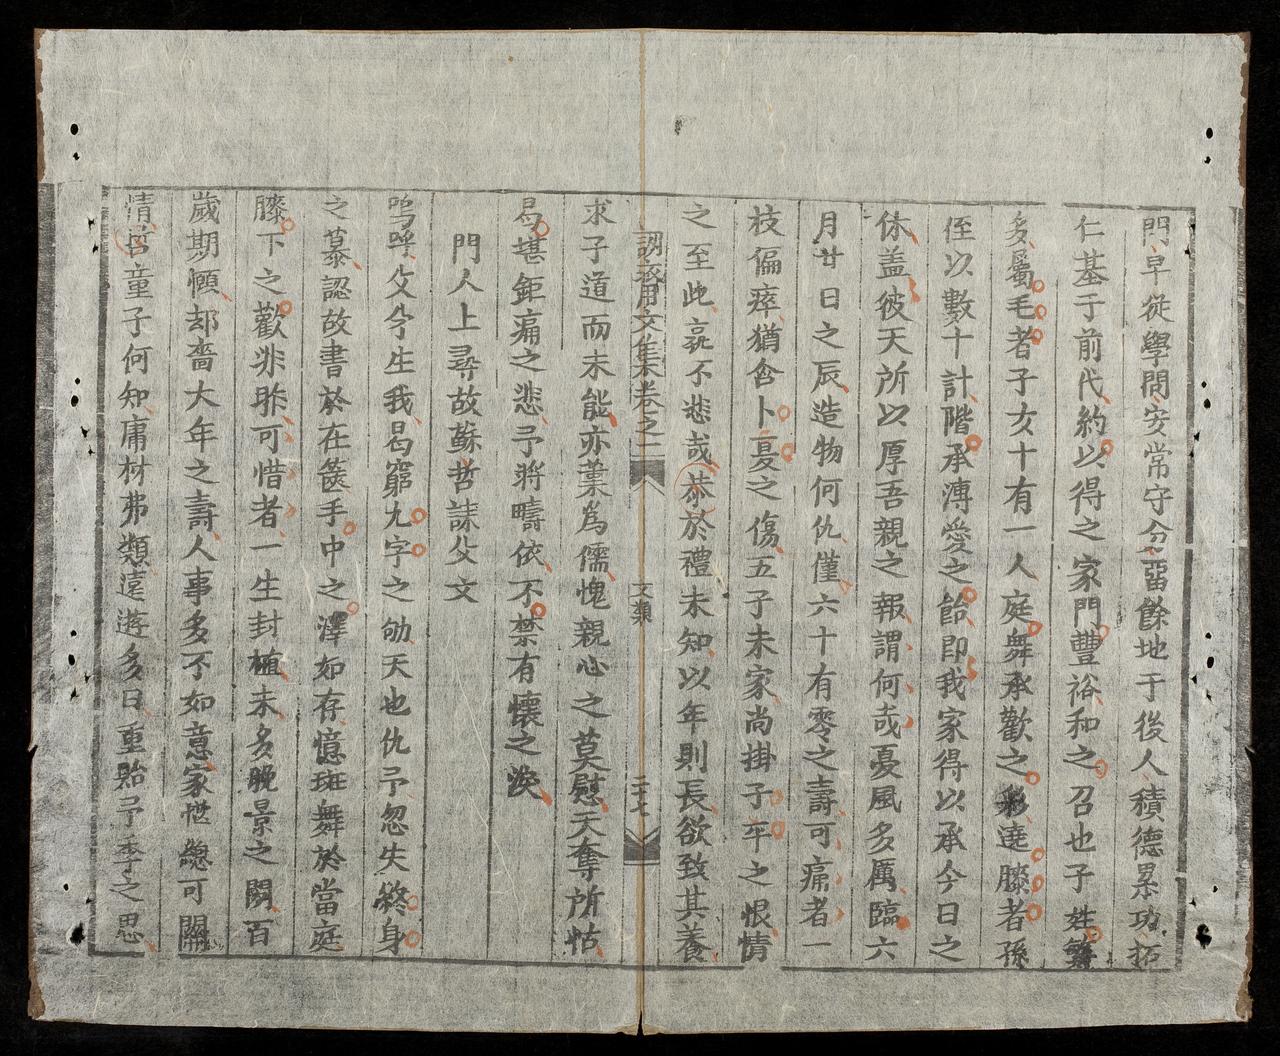 門早從學問安常守分畱餘地于後人積德累功拓
仁基于前代約以得之家門豐裕和之召也子姓
多屬毛者子女十有一人庭舞承歡之彩遶膝者孫
侄以數十計階承溥愛之飴即我家得以承今日之
休盖彼天所以厚吾親之報謂何哉憂風多厲臨六
月廿日之辰造物何仇僅六十有零之壽可痛者一
枝偏瘁猶含卜夏之傷五子未家尚掛子平之恨情
之至此哀不悲哉恭於禮未知以年則長欲致其養
訓齋用文集卷之二 文類 二十七
求子道而未能亦藁為儒愧親心之莫慰天奪所怙
曷堪鉅痛之悲予將疇依不禁有懷之淚
門人上尋故蘇哲誄父文
嗚呼父兮生我曷窮九字之劬天也仇予忽失終身
之慕認故書於在篋手中之澤如存憶斑舞於當庭
膝下之歡非昨可惜者一生封植未多晚景之閑百
歲期頤却嗇大年之壽人事多不如意家世總可關
情哲童子何知庸材弗類遠遊多日重貽予季之思